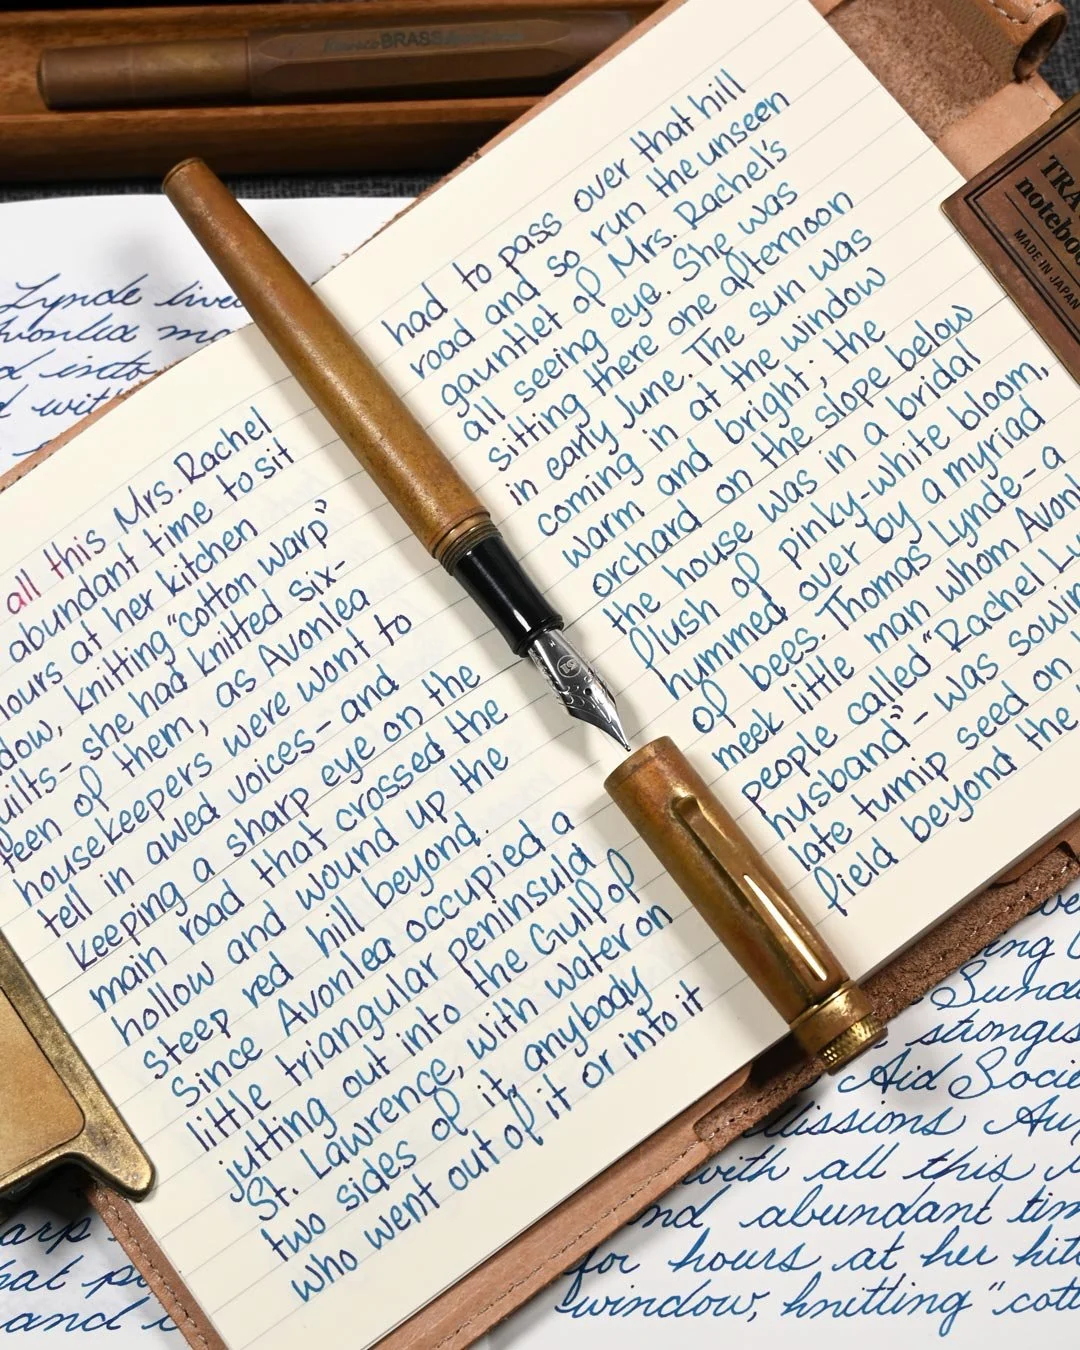 Kaweco BRASS
TRA
notebo
MADE IN JAPAN
Lynde live
Avonlea ma
d into
d with
all this Mrs. Rachel
abundant time to sit
hours at her kitchen
dow, knitting "cotton warp"
uilts- she had knitted six-
teen of them, as Avonlea
housekeepers were wont to
tell in awed voices- and
keeping a sharp eye on the
main road that crossed the
hollow and wound up the
steep red hill beyond.
Since Avonlea occupied a
little triangular peninsula
jutting out into the Gulf of
St. Lawrence, with water on
two sides of it, anybody
who went out of it or into it
had to pass over that hill
road and so run the unseen
gauntlet of Mrs. Rachel's
all seeing eye. She was
sitting there one afternoon
in early June. The sun was
coming in at the window
warm and bright; the
orchard on the slope below
the house was in a bridal
flush of pinky-white bloom,
hummed over by a myriad
of bees. Thomas Lynde- a
meek little man whom Avonl
people called "Rachel Ly
husband"- was sowin
late turnip seed on
field beyond the
ing
Sunda
stronges
Aid Socie
Missions Au
with all this
nd abundant tim
for hours at her kit
window, knitting "cott
arp
at p
and